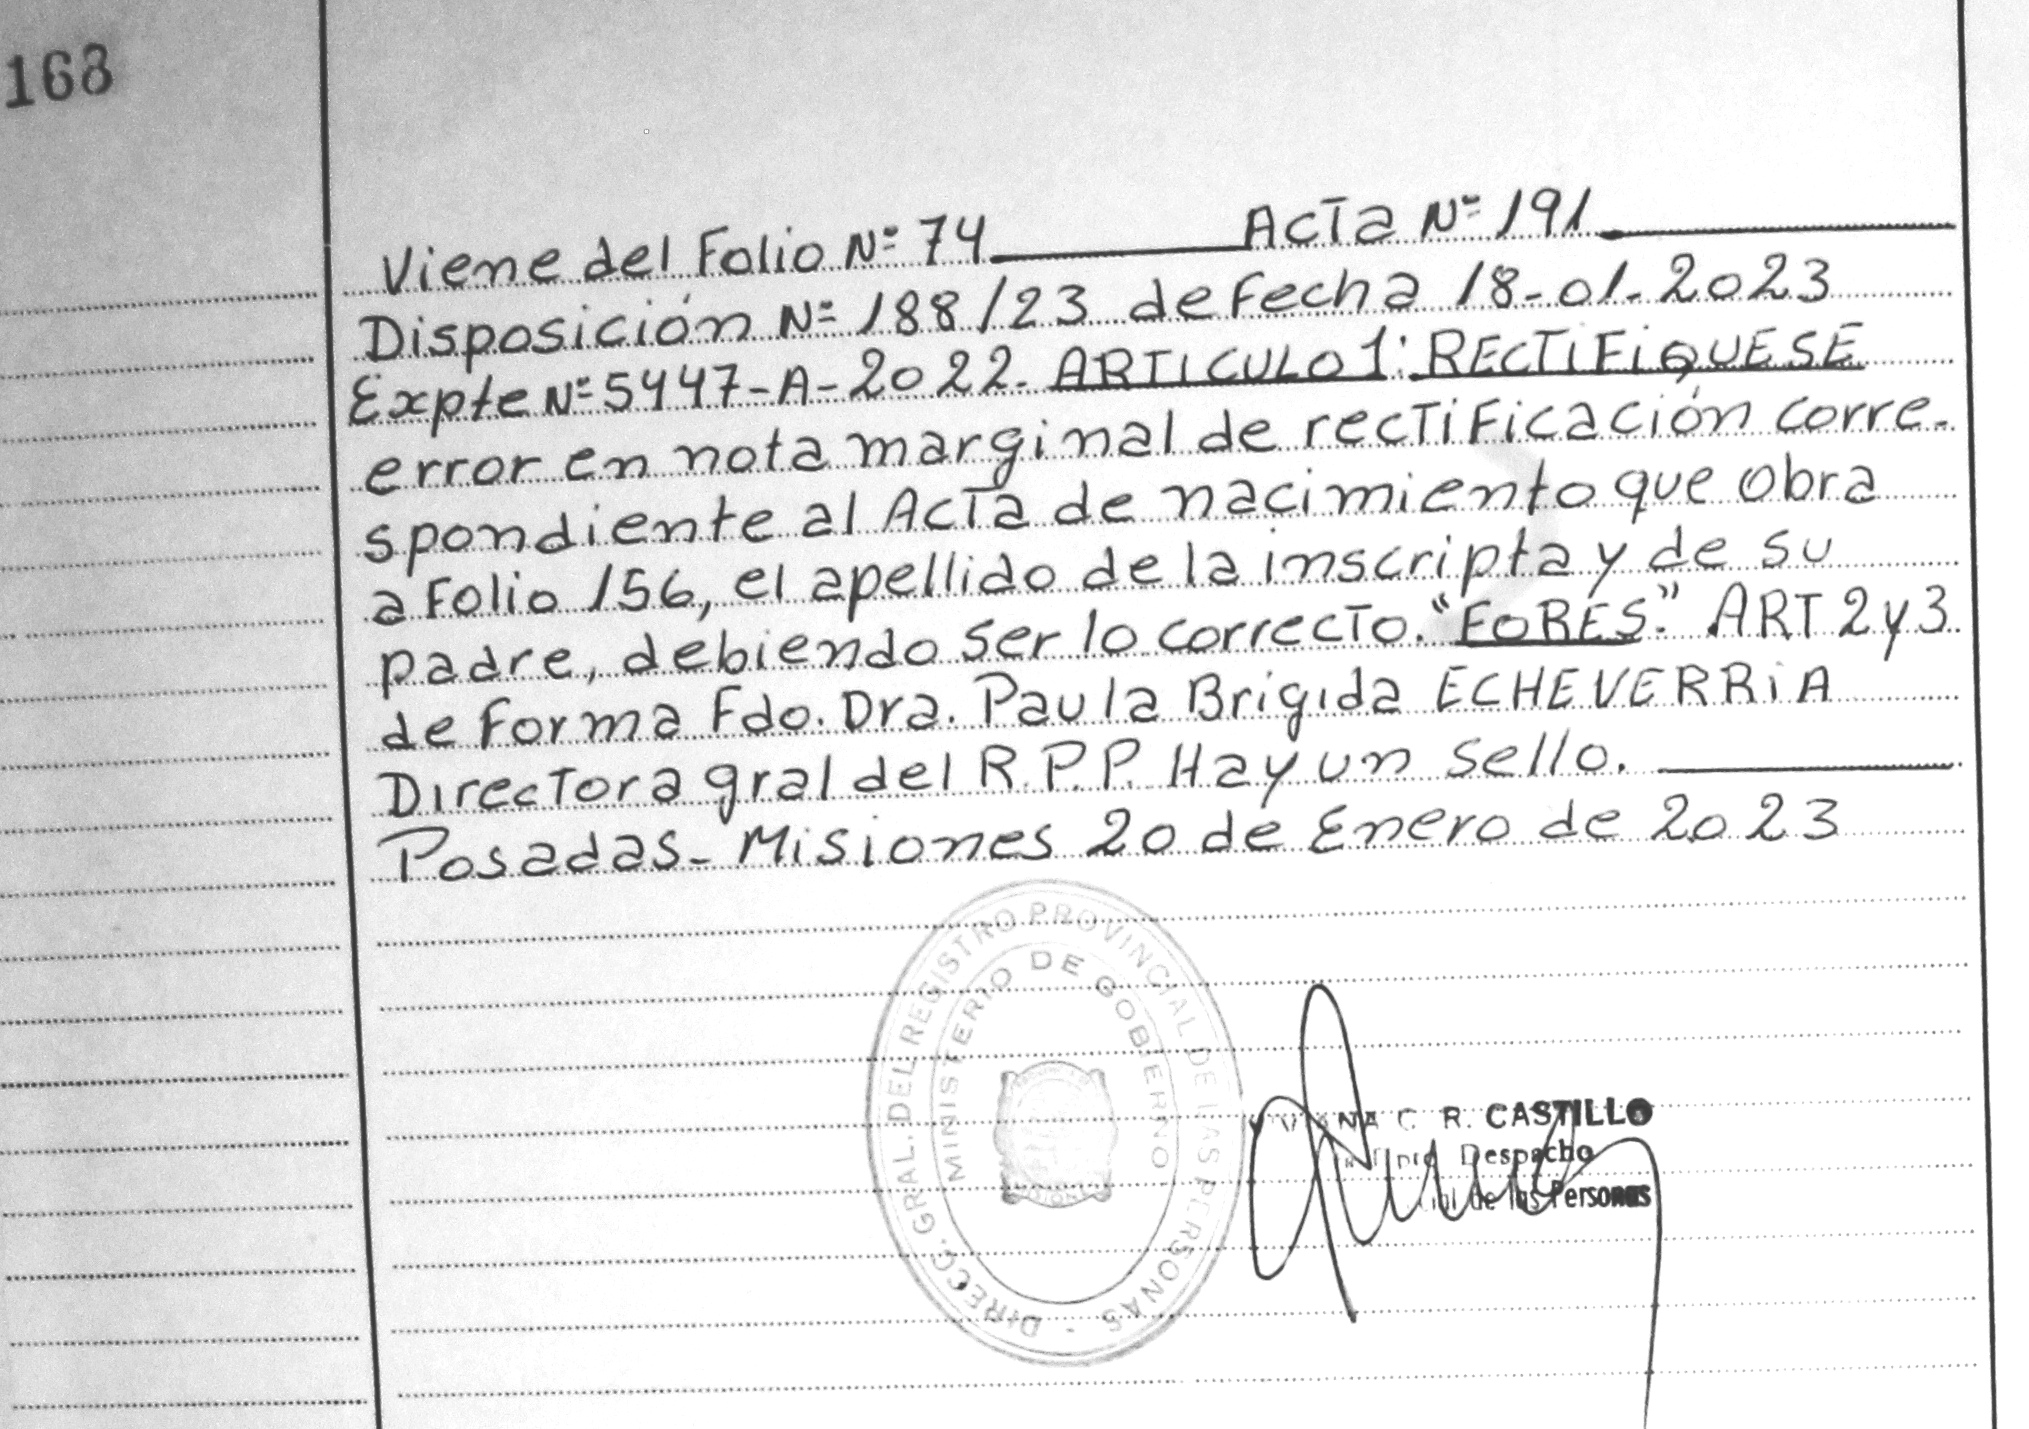 168
Viene del Folio Nº 74 Acta Nº 191
Disposición Nº 188/23 de Fecha 18-01-2023
Expte Nº 5447-A-2022. ARTICULO 1: RECTIFIQUESE
error en nota marginal de rectificación corre-
spondiente al Acta de nacimiento que obra
a Folio 156, el apellido de la inscripta y de su
padre, debiendo ser lo correcto. "FORES." ART 2 y 3
de forma Fdo. Dra. Paula Brigida ECHEVERRIA
Directora gral del R.P.P. Hay un sello.
Posadas- Misiones 20 de Enero de 2023
DIRECC. GRAL. DEL REGISTRO PROVINCIAL DE LAS PERSONAS -
MINISTERIO DE GOBIERNO
C. R. CASTILLO
Despacho
de las Personas